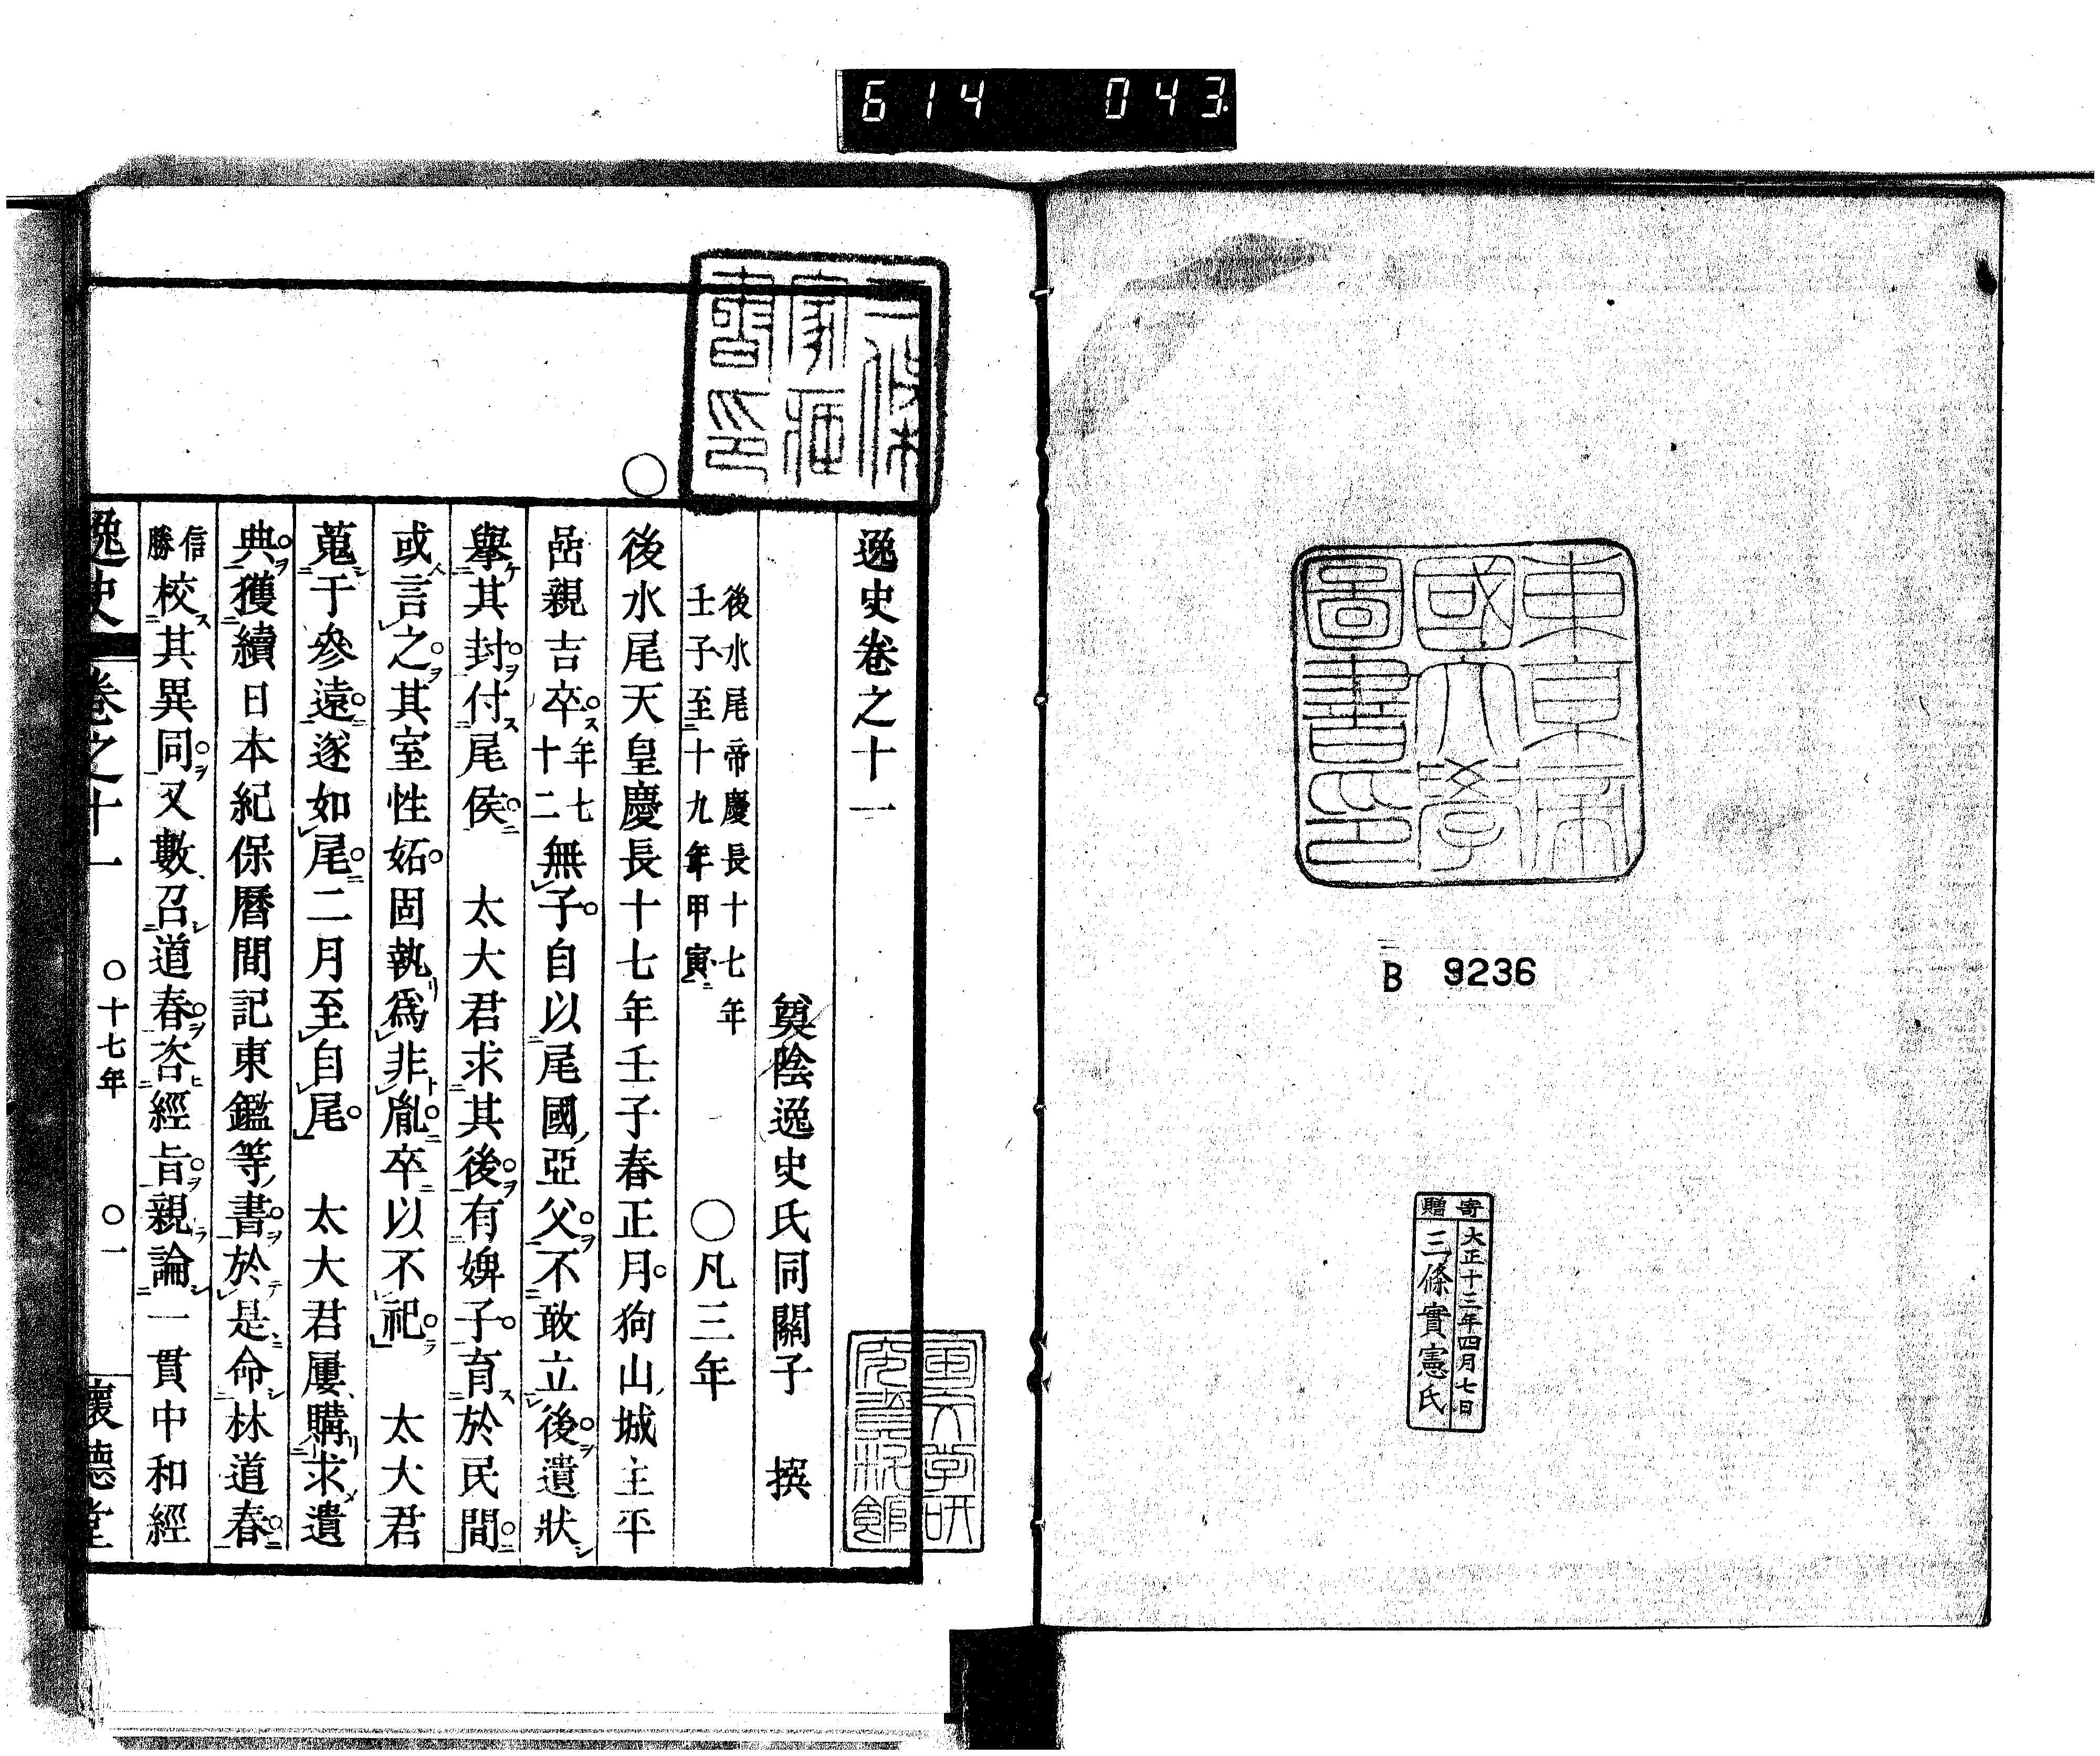 614 043
東京帝
國大學
圖書印
B 9236
寄贈
大正十三年四月七日
三條實憲氏
三條
家藏
書印
逸史卷之十一
奠陰逸史氏同關子 撰
後水尾帝慶長十七年
壬子至十九年甲寅
〇凡三年
後水尾天皇慶長十七年壬子春正月狗山城主平
嵒親吉卒年七十二無子自以尾國亞父不敢立後遺狀
擧其封付尾侯 太大君求其後有婢子育於民間
或言之其室性妬固執爲非胤卒以不祀 太大君
蒐于參遠遂如尾二月至自尾 太大君屢購求遺
典獲續日本紀保曆間記東鑑等書於是命林道春
信勝校其異同又數召道春咨經旨親論一貫中和經
逸史 卷之十一 〇十七年 〇一 懷德堂